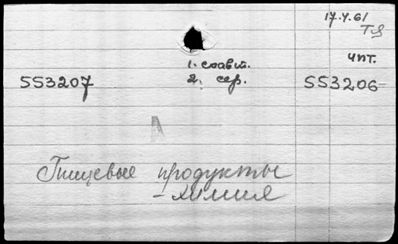 17.V.61
TS
чит.
1. соавт.
2. сер.
553207
553206-
Пищевые продукты
- химия